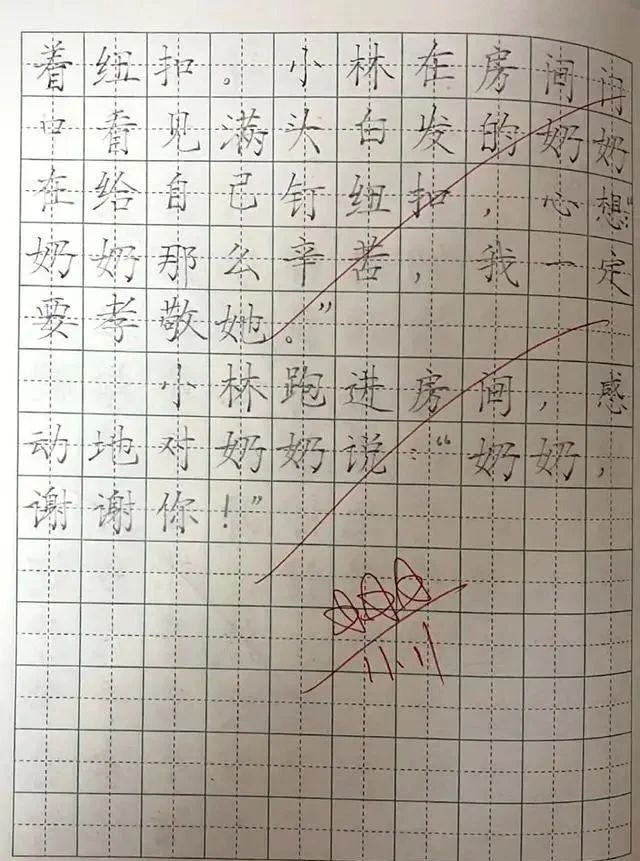 着纽扣。小林在房间门
口看见满头白发的奶奶
在给自己钉纽扣，心想：“
奶奶那么辛苦，我一定
要孝敬她。”
小林跑进房间，感
动地对奶奶说：“奶奶，
谢谢你！”
11.11